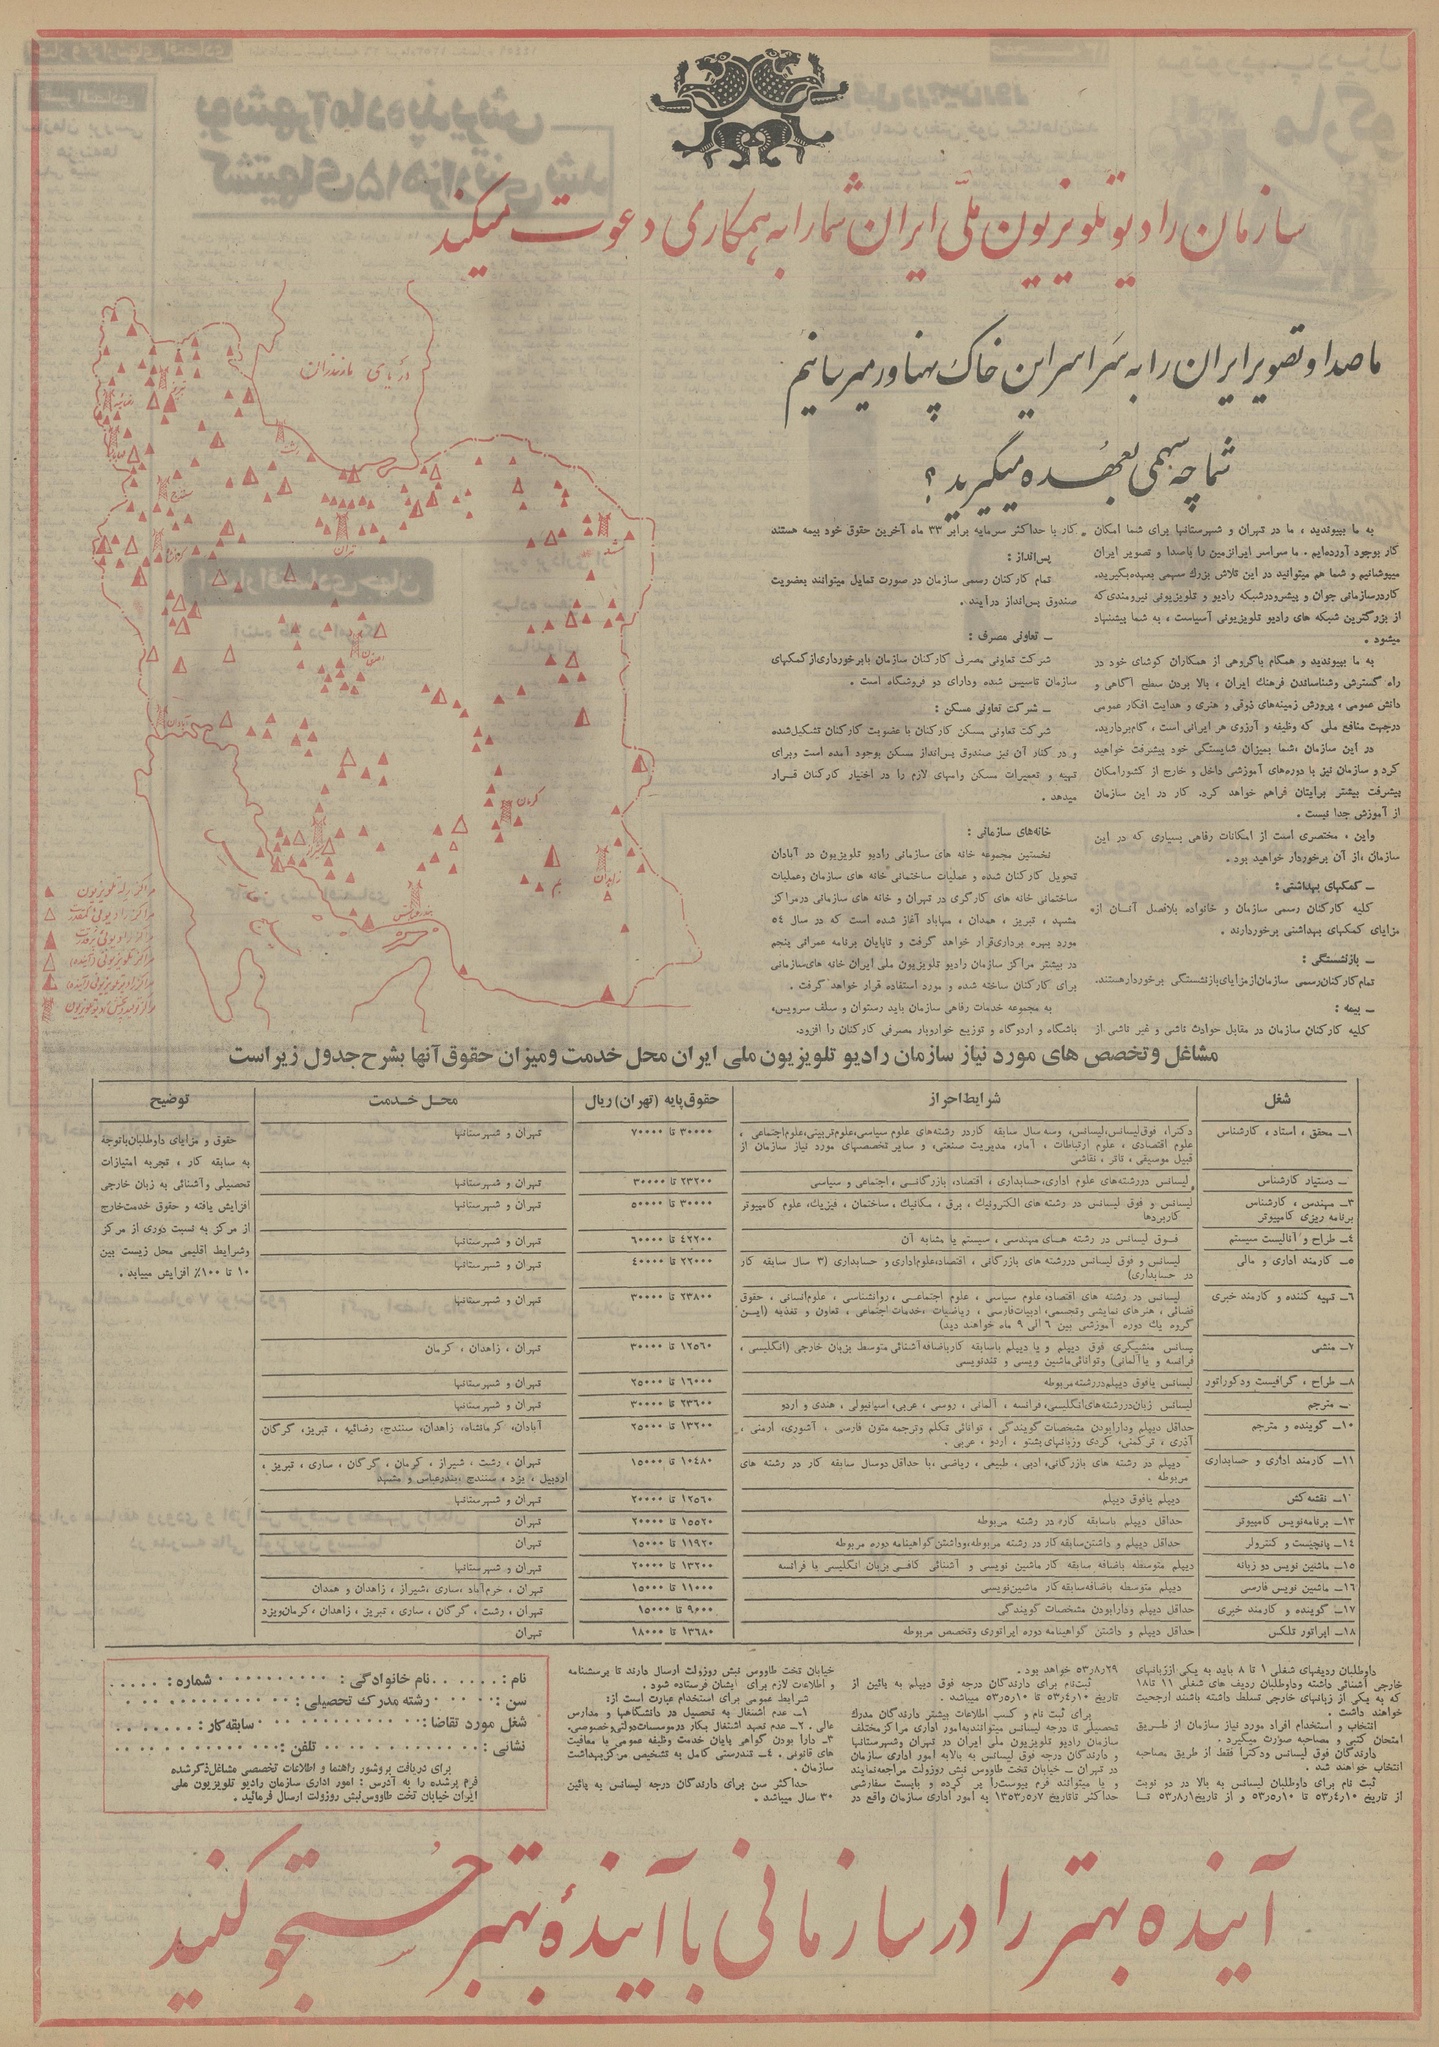 سازمان رادیو تلویزیون ملّی ایران شما را به همکاری دعوت میکند
ما صدا و تصویر ایران را به سَراسر این خاک پهناور میرسانیم
شما چه سهمی بعهده میگیرید؟
به ما بپیوندید ، ما در تهران و شهرستانها برای شما امکان
کار بوجود آورده‌ایم . ما سراسر ایرانزمین را باصدا و تصویر ایران
میپوشانیم و شما هم میتوانید در این تلاش بزرگ سهمی بعهده‌بگیرید.
کاردرسازمانی جوان و پیشرودرشبکه رادیو و تلویزیونی نیرومندی‌که
از بزرگترین شبکه های رادیو تلویزیونی آسیاست ، به شما پیشنهاد
میشود .
به ما بپیوندید و همگام باگروهی از همکاران کوشای خود در
راه گسترش وشناساندن فرهنگ ایران ، بالا بردن سطح آگاهی و
دانش عمومی ، پرورش زمینه‌های ذوقی و هنری و هدایت افکار عمومی
درجهت منافع ملی که وظیفه و آرزوی هر ایرانی است ، گام‌بردارید.
در این سازمان ،شما بمیزان شایستگی خود پیشرفت خواهید
کرد و سازمان نیز با دوره‌های آموزشی داخل و خارج از کشورامکان
پیشرفت بیشتر برایتان فراهم خواهد کرد. کار در این سازمان
از آموزش جدا نیست .
واین ، مختصری است از امکانات رفاهی بسیاری که در این
سازمان ،از آن برخوردار خواهید بود .
ــ کمکهای بهداشتی :
کلیه کارکنان رسمی سازمان و خانواده بلافصل آنان از
مزایای کمکهای بهداشتی برخوردارند .
ــ بازنشستگی :
تمام‌کارکنان‌رسمی سازمان‌ازمزایای‌بازنشستگی برخوردارهستند.
ــ بیمه :
کلیه کارکنان سازمان در مقابل حوادث ناشی و غیر ناشی از
کار با حداکثر سرمایه برابر ۳۳ ماه آخرین حقوق خود بیمه هستند
پس‌انداز :
تمام کارکنان رسمی سازمان در صورت تمایل میتوانند بعضویت
صندوق پس‌انداز درآیند .
ــ تعاونی مصرف :
شرکت تعاونی مصرف کارکنان سازمان بابرخورداری‌ازکمکهای
سازمان تاسیس شده ودارای دو فروشگاه است .
ــ شرکت تعاونی مسکن :
شرکت تعاونی مسکن کارکنان با عضویت کارکنان تشکیل‌شده
و در کنار آن نیز صندوق پس‌انداز مسکن بوجود آمده است وبرای
تهیه و تعمیرات مسکن وامهای لازم را در اختیار کارکنان قـرار
میدهد .
خانه‌های سازمانی :
نخستین مجموعه خانه های سازمانی رادیو تلویزیون در آبادان
تحویل کارکنان شده و عملیات ساختمانی خانه های سازمن وعملیات
ساختمانی خانه های کارگری در تهران و خانه های سازمانی درمراکز
مشهد ، تبریز ، همدان ، مهاباد آغاز شده است که در سال ۵٤
مورد بهره برداری‌قرار خواهد گرفت و تاپایان برنامه عمرانی پنجم
در بیشتر مراکز سازمان رادیو تلویزیون ملی ایران خانه های‌سازمانی
برای کارکنان ساخته شده و مورد استفاده قرار خواهد گرفت .
به مجموعه خدمات رفاهی سازمان باید رستوان و سلف سرویس،
باشگاه و اردوگاه و توزیع خواروبار مصرفی کارکنان را افزود.
دریای مازندران
تبریز
رضائیه
مهاباد
رشت
سنندج
کرمانشاه
تهران
مشهد
اصفهان
آبادان
کرمان
شیراز
زاهدان
بم
بندرعباس
مراکز رله تلویزیون
مشاغل و تخصص های مورد نیاز سازمان رادیو تلویزیون ملی ایران محل خدمت ومیزان حقوق آنها بشرح جدول زیراست
شغل	شرایط احراز	حقوق پایه (تهران) ریال	محل خدمت	توضیح
۱ــ محقق ، استاد ، کارشناس	دکترا، فوق‌لیسانس،لیسانس، وسه سال سابقه کاردر رشته‌های علوم سیاسی،علوم‌تربیتی،علوم‌اجتماعی ،	۳۰۰۰۰ تا ۷۰۰۰۰	تهران و شهرستانها
علوم اقتصادی ، علوم ارتباطات ، آمار، مدیریت صنعتی، و سایر تخصصهای مورد نیاز سازمان از
قبیل موسیقی ، تاتر ، نقاشی
ــ دستیار کارشناس	لیسانس دررشته‌های علوم اداری،حسابداری ، اقتصاد، بازرگانـی ، اجتماعی و سیاسی	۲۳۲۰۰ تا ۳۰۰۰۰	تهران و شهرستانها
۳ــ مهندس ، کارشناس	لیسانس و فوق لیسانس در رشته های الکترونیک ، برق ، مکانیک ، ساختمان ، فیزیک، علوم کامپیوتر	۳۰۰۰۰ تا ۵۰۰۰۰	تهران و شهرستانها
برنامه ریزی کامپیوتر	کاربردها
٤ــ طراح و آنالیست سیستم	فـوق لیسانس در رشته هـای مهندسی ، سیستم یا مشابه آن	٤۲۲۰۰ تا ۶۰۰۰۰	تهران و شهرستانها
۵ــ کارمند اداری و مالی	لیسانس و فوق لیسانس دررشته های بازرگانی ، اقتصاد،علوم‌اداری و حسابداری (۳ سال سابقه کار	۲۲۰۰۰ تا ٤۰۰۰۰	تهران و شهرستانها
در حسابداری)
۶ــ تهیه کننده و کارمند خبری	لیسانس در رشته های اقتصاد، علوم سیاسی ، علوم اجتماعـی ، روانشناسی ، علوم‌انسانی ، حقوق	۲۳۸۰۰ تا ۳۰۰۰۰	تهران و شهرستانها
قضائی ، هنرهای نمایشی وتجسمی، ادبیات‌فارسی ، ریاضیات ،خدمات‌اجتماعی ، تعاون و تغذیه (ایـن
گروه یک دوره آموزشی بین ۶ الی ۹ ماه خواهند دید)
۷ــ منشی	لیسانس منشیگری فوق دیپلم و یا دیپلم باسابقه کارباضافه‌آشنائی متوسط بزبان خارجی (انگلیسی ،	۱۲۵۶۰ تا ۳۰۰۰۰	تهران ، زاهدان ، کرمان
فرانسه و یاآلمانی) وتوانائی‌ماشین ویسی و تندنویسی
۸ــ طراح ، گرافیست ودکوراتور	لیسانس یافوق دیپلم‌دررشته‌مربوطه	۱۶۰۰۰ تا ۲۵۰۰۰	تهران و شهرستانها
ــ مترجم	لیسانس زبان‌دررشته‌های‌انگلیسی، فرانسه ، آلمانی ، روسی ، عربی، اسپانیولی ، هندی و اردو	۲۳۶۰۰ تا ۳۰۰۰۰	تهران و شهرستانها
۱۰ــ گوینده و مترجم	حداقل دیپلم ودارابودن مشخصات گویندگی ، توانائی تکلم وترجمه متون فارسی ، آشوری، ارمنی ،	۱۳۲۰۰ تا ۲۵۰۰۰	آبادان، کرمانشاه، زاهدان، سنندج، رضائیه ، تبریز، گرگان
آذری ، ترکمنی، کردی وزبانهای‌پشتو ، اردو ، عربی .
۱۱ــ کارمند اداری و حسابداری	دیپلم در رشته های بازرگانی، ادبی ، طبیعی ، ریاضی ،با حداقل دوسال سابقه کار در رشته های	۱۰٤۸۰ تا ۱۵۰۰۰	تهران ، رشت ، شیراز ، کرمان ، گرگان ، ساری ، تبریز ،
مربوطه .	اردبیل ، یزد ، سنندج ،بندرعباس و مشهد
نقشه کش	دیپلم یافوق دیپلم	۱۲۵۶۰ تا ۲۰۰۰۰	تهران و شهرستانها
۱۳ــ برنامه‌نویس کامپیوتر	حداقل دیپلم باسابقه کار در رشته مربوطه	۱۵۵۲۰ تا ۲۰۰۰۰	تهران
۱٤ــ پانچیست و کنترولر	حداقل دیپلم و داشتن‌سابقه‌کار در رشته مربوطه،وداشتن‌گواهینامه دوره مربوطه	۱۱۹۲۰ تا ۱۵۰۰۰	تهران
۱۵ــ ماشین نویس دو زبانه	دیپلم متوسطه باضافه سابقه کار ماشین نویسی و آشنائی کافـی بزبان انگلیسی یا فرانسه	۱۳۲۰۰ تا ۲۰۰۰۰	تهران و شهرستانها
۱۶ــ ماشین نویس فارسی	دیپلم متوسطه باضافه‌سابقه‌کار ماشین‌نویسی	۱۱۰۰۰ تا ۱۵۰۰۰	تهران ، خرم‌آباد ،ساری ،شیراز ، زاهدان و همدان
۱۷ــ گوینده و کارمند خبری	حداقل دیپلم ودارابودن مشخصات گویندگی	۹۰۰۰ تا ۱۵۰۰۰	تهران ، رشت ، گرگان ، ساری ، تبریز ، زاهدان ،کرمان‌ویزد
۱۸ــ اپراتور تلکس	حداقل دیپلم و داشتن گواهینامه دوره اپراتوری وتخصص مربوطه	۱۳۶۸۰ تا ۱۸۰۰۰	تهران
حقوق و مزایای داوطلبان‌باتوجه
به سابقه کار ، تجربه امتیازات
تحصیلی وآشنائی به زبان خارجی
افزایش یافته و حقوق خدمت‌خارج
از مرکز به نسبت دوری از مرکز
وشرایط اقلیمی محل زیست بین
۱۰ تا ۱۰۰٪ افزایش مییابد .
داوطلبان ردیفهای شغلی ۱ تا ۸ باید به یکی اززبانهای
خارجی آشنائی داشته وداوطلبان ردیف های شغلی ۱۱ تا۱۸
که به یکی از زبانهای خارجی تسلط داشته باشند ارجحیت
خواهند داشت .
انتخاب و استخدام افراد مورد نیاز سازمان از طـریق
امتحان کتبی و مصاحبه صورت میگیرد .
دارندگان فوق لیسانس ودکترا فقط از طریق مصاحبه
انتخاب خواهند شد .
ثبت نام برای داوطلبان لیسانس به بالا در دو نوبت
از تاریخ ۵۳ر٤ر۱۰ تا ۵۳ر۵ر۱۰ و از تاریخ۵۳ر۸ر۱ تـا
۵۳ر۸ر۲۹ خواهد بود .
ثبت‌نام برای دارندگان درجه فوق دیپلم به پائین از
تاریخ ۵۳ر٤ر۱۰ تا ۵۳ر۵ر۱۰ میباشد .
برای ثبت نام و کسب اطلاعات بیشتر دارندگان مدرک
تحصیلی تا درجه لیسانس میتوانندبه‌امور اداری مراکزمختلف
سازمان رادیو تلویزیون ملی ایران در تهران وشهرستانها
و دارندگان درجه فوق لیسانس به بالابه امور اداری سازمان
در تهران ــ خیابان تخت طاووس نبش روزولت مراجعه‌نمایند
و یا میتوانند فرم پیوست‌را پر کرده و با پست سفارشی
حداکثر تاتاریخ ۱۳۵۳ر۵ر۷ به امور اداری سازمان واقع در
خیابان تخت طاووس نبش روزولت ارسال دارند تا پرسشنامه
و اطلاعات لازم برای ایشان فرستاده شود .
شرایط عمومی برای استخدام عبارت است از:
۱ــ عدم اشتغال به تحصیل در دانشگاهها و مدارس
عالی . ۲ــ عدم تعهد اشتغال بکار درموسسات‌دولتی‌وخصوصی.
۳ــ دارا بودن گواهی پایان خدمت وظیفه عمومی یا معافیت
های قانونی . ٤ــ تندرستی کامل به تشخیص مرکزبهداشت
سازمان .
حداکثر سن برای دارندگان درجه لیسانس به پائین
۳۰ سال میباشد .
نام : ...... نام خانوادگی : .......... شماره : .....
سن : ..... رشته مدرک تحصیلی : ..........
شغل مورد تقاضا : .......... سابقه کار : .......
نشانی : .......... تلفن : ..........
برای دریافت بروشور راهنما و اطلاعات تخصصی مشاغل‌ذکرشده
فرم پرشده را به آدرس : امور اداری سازمان رادیو تلویزیون ملی
ایران خیابان تخت طاووس‌نبش روزولت ارسال فرمائید .
آینده بهتر را در سازمانی با آیندهٔ بهتر جستجو کنید